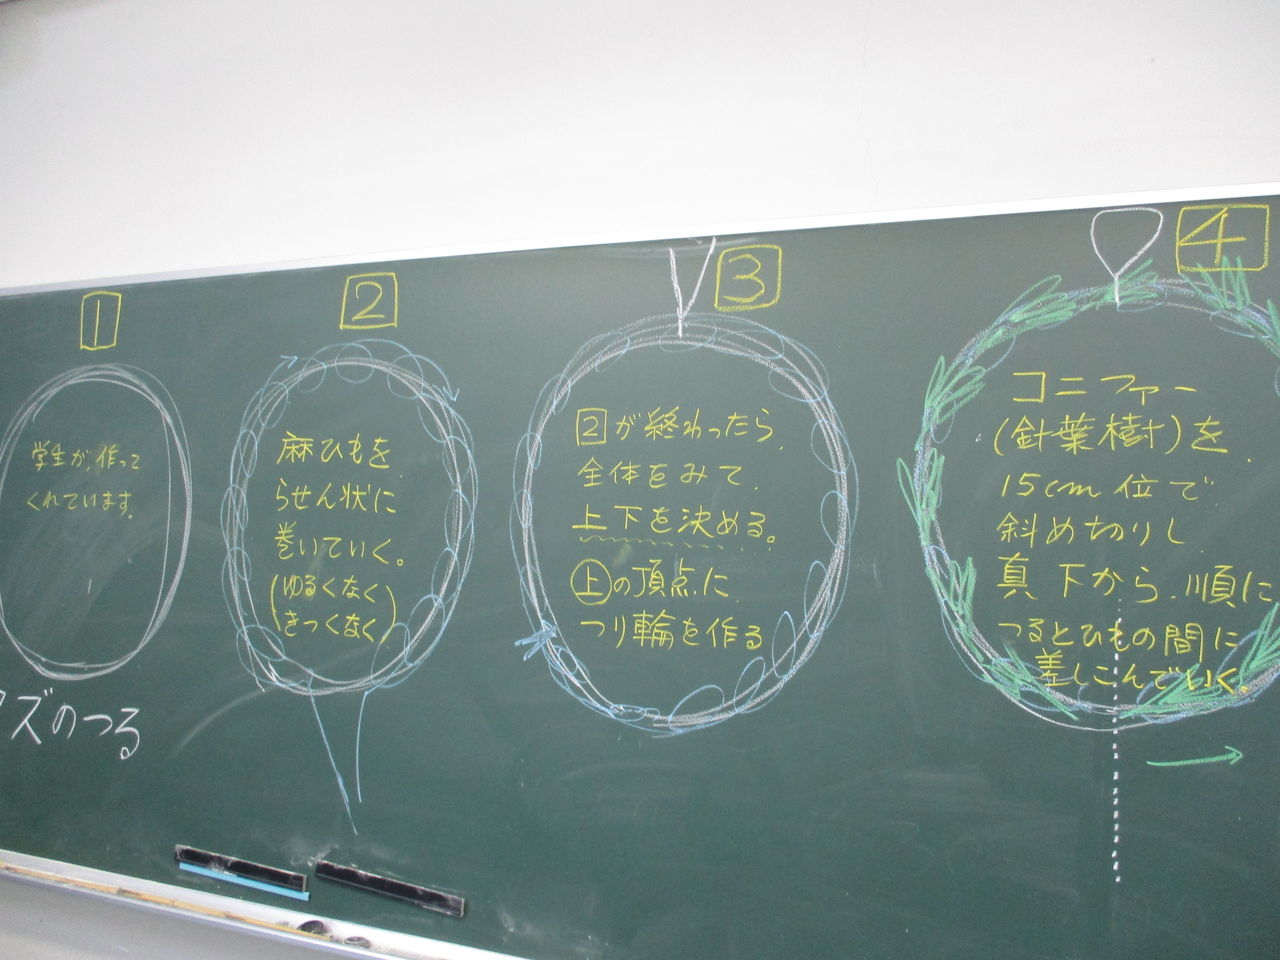 1
学生が、作って
くれています。
ズのつる
2
麻ひもを
らせん状に
巻いていく。
(ゆるくなく
きつくなく)
3
2が終わったら
全体をみて
上下を決める。
上の頂点に
つり輪を作る
4
コニファー
(針葉樹)を
15cm位で
斜め切りし
真下から、順に
つるとひもの間に
差しこんでいく。